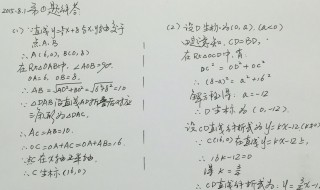 2015.8.1 第①题解答
(1) ∵直线y=x+8与x轴y轴交于
点A.B
∴A(6,0), B(0,8)
在Rt△OAB中, ∠AOB=90°.
OA=6, OB=8.
∴AB=√(OA²+OB²)=√(6²+8²)=10
∵△DAB沿直线AD折叠后对应
三角形为△DAC.
∴AC=AB=10.
∴OC=OA+AC=OA+AB=16.
∵C在x轴正半轴.
∴C坐标(16,0)
(2) 设D坐标为(0,a). (a<0)
题意知. CD=BD.
在Rt△OCD中, 有
DC²=OD²+OC²
∴(8-a)²=a²+16²
解方程得. a=-12
∴D坐标(0,-12).
设CD直线解析式为 y=kx-12(k≠0)
∵C(16,0)在直线y=kx-12上,
∴16k-12=0
得k=
∴CD直线解析式为: y=x-12.